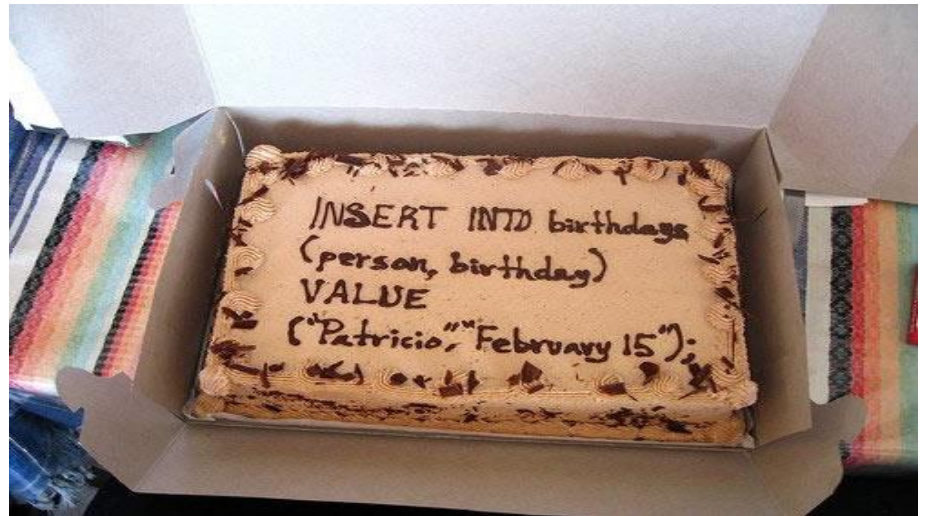 INSERT INTO birthdays
(person, birthday)
VALUE
("Patricio," "February 15");